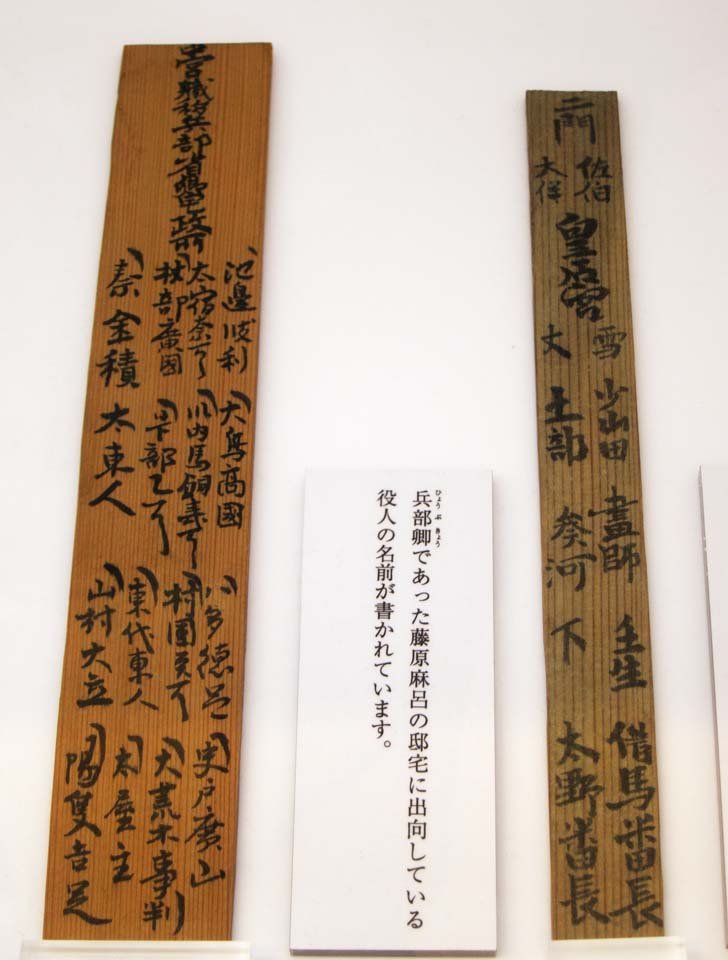 二門
佐伯
大伴
皇后宮
雪 少山田 畫師 壬生 借馬番長
丈 土部 葵河 下 太野番長
兵部卿であった藤原麻呂の邸宅に出向している
ひょうぶきょう
役人の名前が書かれています。
中宮職移兵部省卿宅政所
池邊波利 大鳥高國 八多徳足 史戸廣山
太宿奈万呂 川内馬飼夷万呂 村國虫万呂 大荒木事判
杖部廣國 日下部乙万呂 東代東人 太屋主
秦金積 太東人 山村大立 陽侯吉足